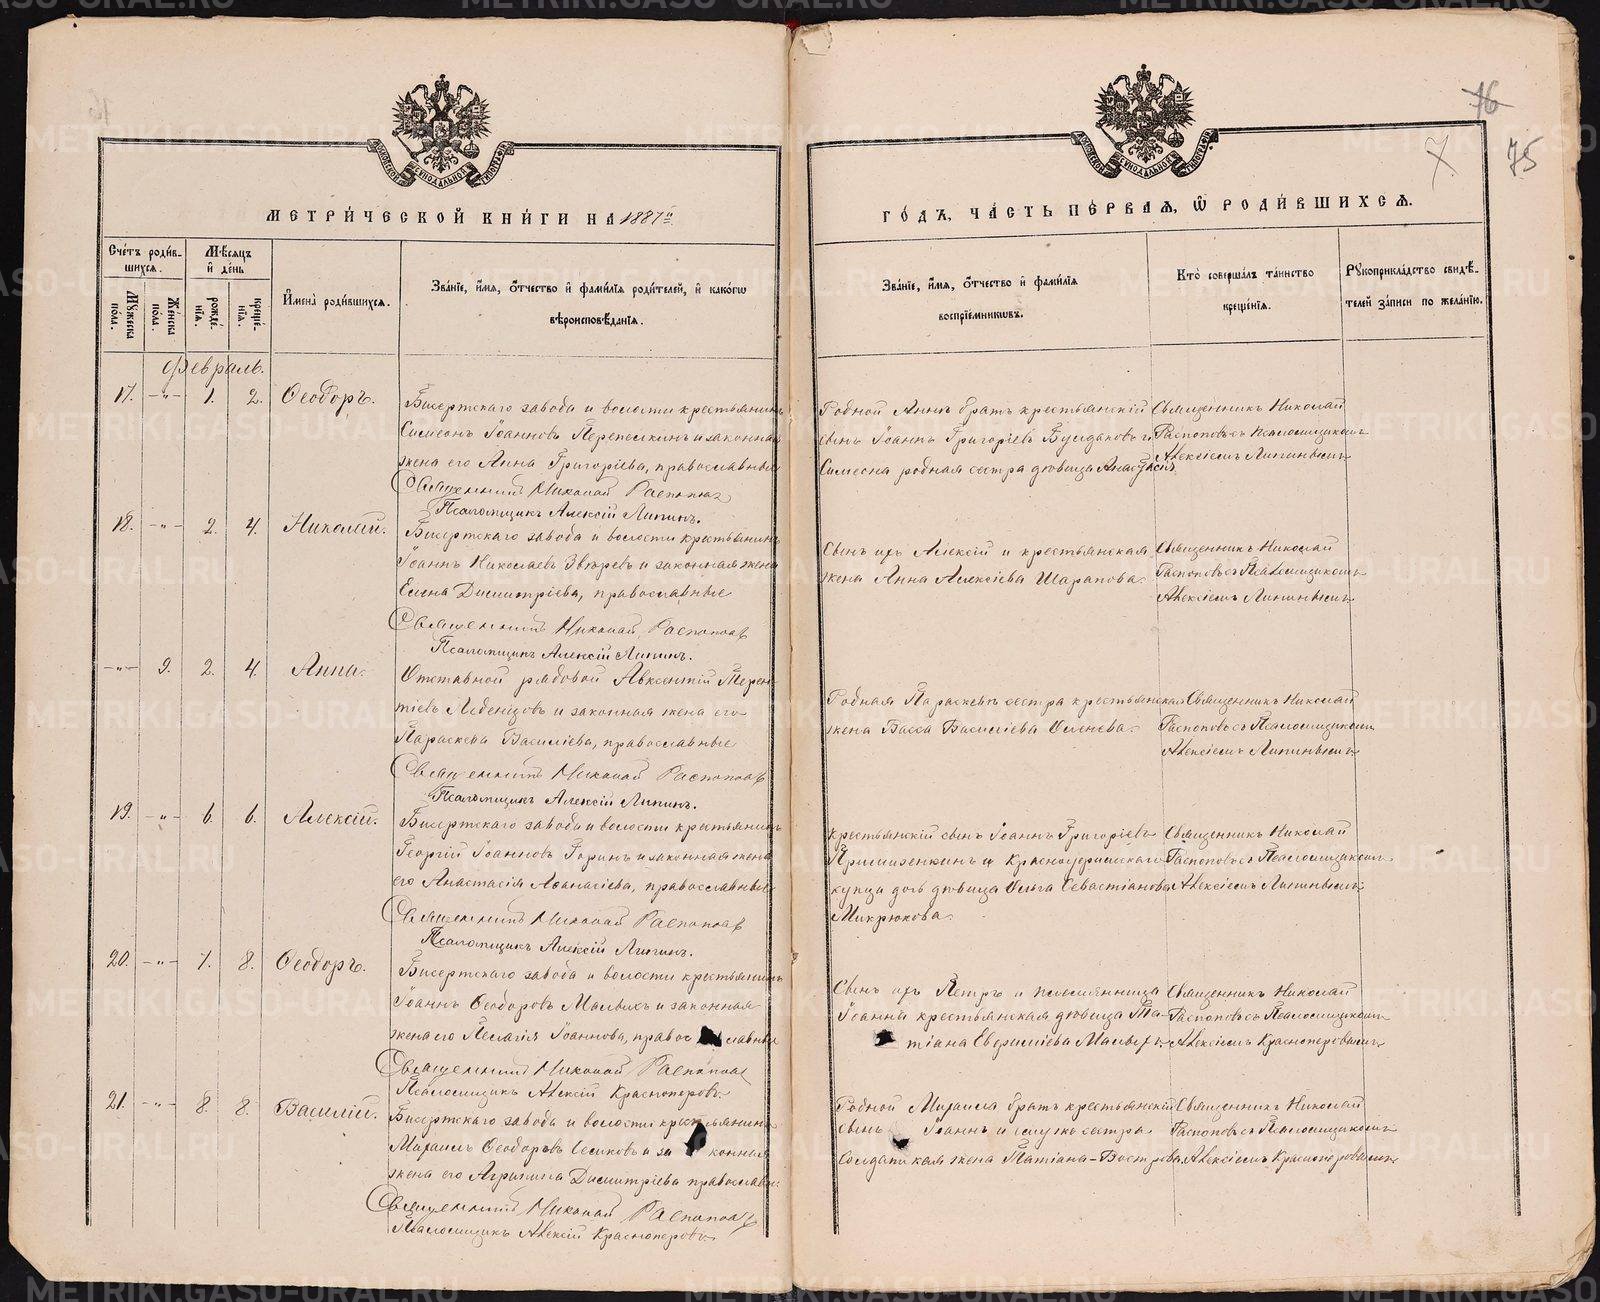 76
7
75
МЕТРИ́ЧЕСКОЙ КНИ́ГИ НА 1887
ГО́ДЪ, ЧА́СТЬ ПЕ́РВАЯ, Ѡ РОДИ́ВШИХСЯ.
Сче́тъ роди́в-
шихся.
Мѣсяцъ
и҆ де́нь
Мꙋжеска по́ла.
Же́нска по́ла.
рожде́нїя.
креще́нїя.
И҆мена̀ роди́вшихся.
Зва́нїе, и҆́мя, ѻ҆́тчество и҆ фами́лїя роди́телей, и҆ како́гѡ
вѣроисповѣ́данїя.
Зва́нїе, и҆́мя, ѻ҆́тчество и҆ фами́лїя
воспрїе́мниковъ.
Кто̀ соверша́лъ та́инство
креще́нїя.
Рꙋкоприкла́дство свидѣ́-
телей за́писи по жела́нїю.
Февраль.
17. -"- 1. 2. Ѳеодоръ.
Бисертскаго завода и волости крестьянинъ
Симеонъ Іоанновъ и законная
жена его Анна Григоріева, православные
Священникъ Николай Распоповъ
Псаломщикъ Алексій Липинъ.
Родной Анны братъ крестьянскій
сынъ Іоаннъ Григоріевъ и
Симеона родная сестра дѣвица Анастасія
Священникъ Николай
Распоповъ съ Псаломщикомъ
Алексіемъ Липинымъ
18. -"- 2. 4. Николай.
Бисертскаго завода и волости крестьянинъ
Іоаннъ Николаевъ и законная жена
Елена Димитріева, православные
Священникъ Николай Распоповъ
Псаломщикъ Алексій Липинъ.
Сынъ ихъ Алексій и крестьянская
жена Анна Алексіева Шарапова.
Священникъ Николай
Распоповъ съ Псаломщикомъ
Алексіемъ Липинымъ
-"- 9. 2. 4. Анна.
Отставной рядовой Авксентій Терен-
тіевъ Лебенцовъ и законная жена его
Параскева Василіева, православные
Священникъ Николай Распоповъ
Псаломщикъ Алексій Липинъ.
Родная Параскевы сестра крестьянская
жена Васса Василіева
Священникъ Николай
Распоповъ съ Псаломщикомъ
Алексіемъ Липинымъ
19. -"- 6. 6. Алексій.
Бисертскаго завода и волости крестьянинъ
Георгій Іоанновъ Горинъ и законная жена
его Анастасія Аѳанасіева, православные
Священникъ Николай Распоповъ
Псаломщикъ Алексій Липинъ.
Крестьянскій сынъ Іоаннъ Григоріевъ
и Красноуфимскаго
купца дочь дѣвица Ольга Севастіанова
Микрюкова.
Священникъ Николай
Распоповъ съ Псаломщикомъ
Алексіемъ Липинымъ
20. -"- 7. 8. Ѳеодоръ.
Бисертскаго завода и волости крестьянинъ
Іоаннъ Ѳеодоровъ Малыхъ и законная
жена его Пелагія Іоаннова, православные
Священникъ Николай Распоповъ
Псаломщикъ Алексій Красноперовъ.
Сынъ ихъ Петръ и племянница
Іоанна крестьянская дѣвица Та-
тіана Малыхъ.
Священникъ Николай
Распоповъ съ Псаломщикомъ
Алексіемъ Красноперовымъ
21. -"- 8. 8. Василій.
Бисертскаго завода и волости крестьянинъ
Михаилъ Ѳеодоровъ и законная
жена его Агрипина Димитріева православн.
Священникъ Николай Распоповъ
Псаломщикъ Алексій Красноперовъ
Родной Михаила братъ крестьянскій
сынъ Іоаннъ и сестра
Солдатская жена Татіана
Священникъ Николай
Распоповъ съ Псаломщикомъ
Алексіемъ Красноперовымъ
METRIKI.GASO-URAL.RU